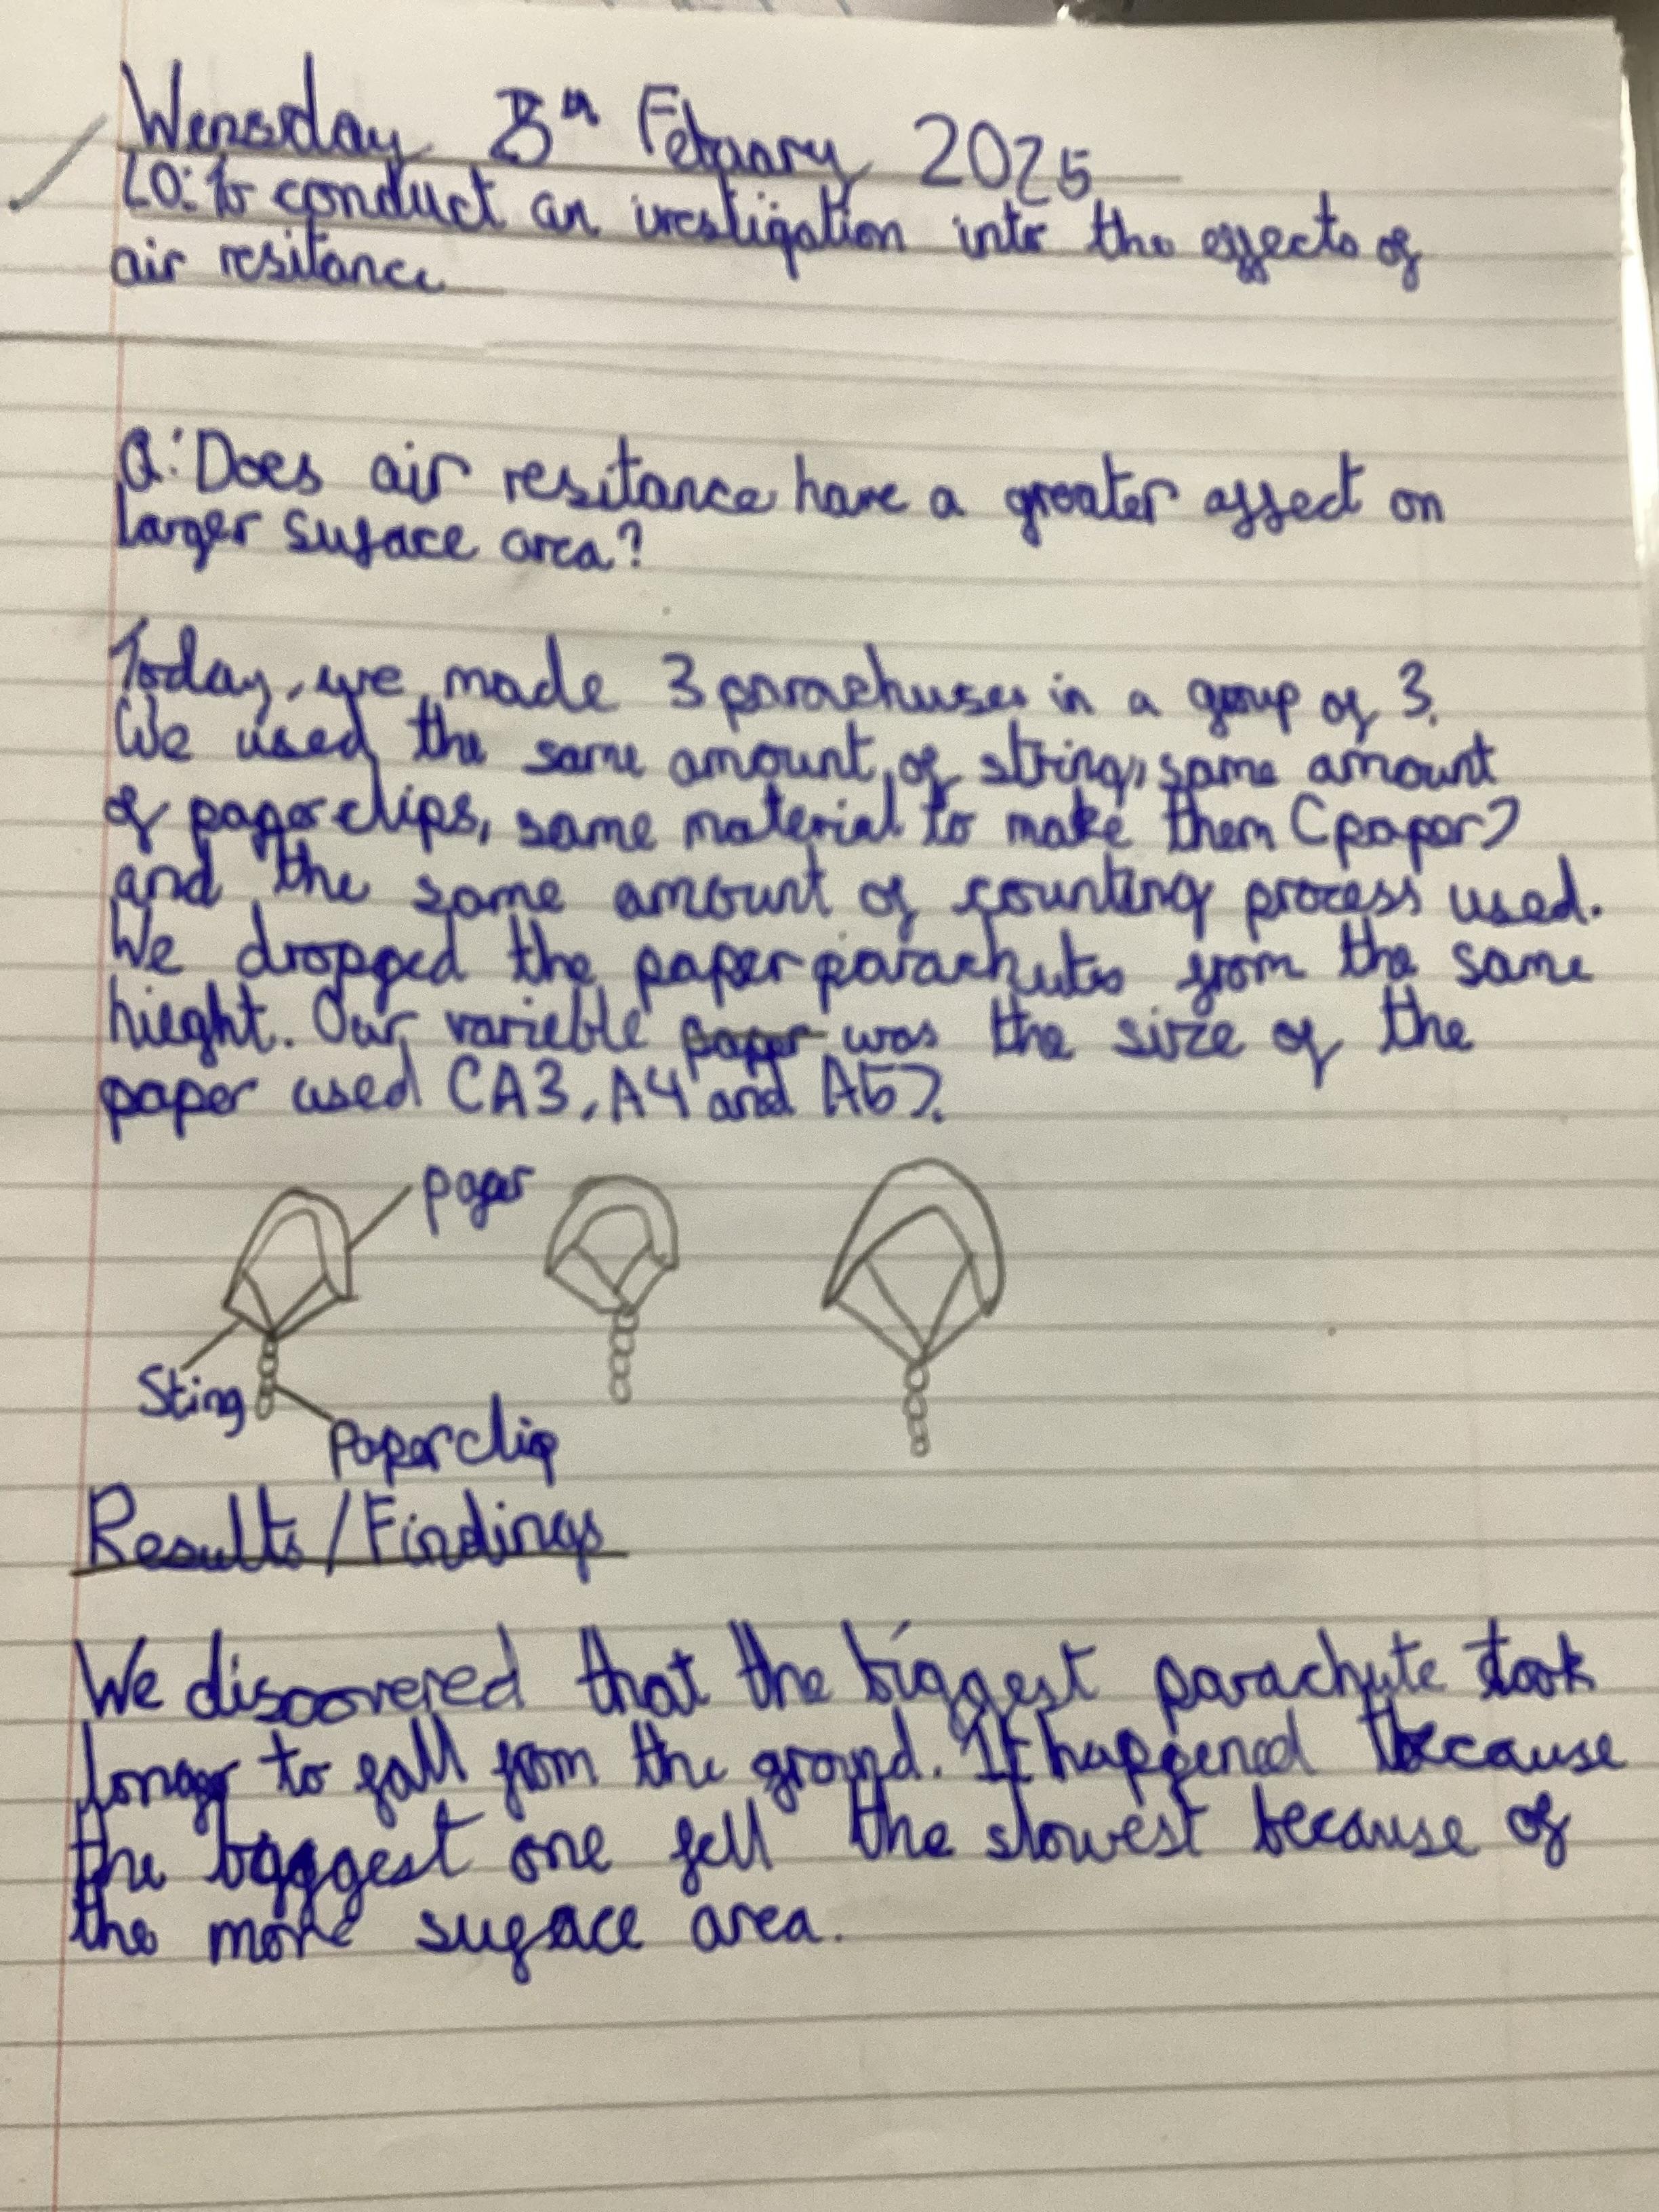 Wensday 5th Febuary 2025
LO: to conduct an investigation into the effects of
air resitance
Q: Does air resitance have a greater affect on
larger suface area?
Today, we made 3 parachuses in a group of 3.
We used the same amount of string, same amount
of paperclips, same material to make them (paper)
and the same amount of counting process used.
We dropped the paper parachutes from the same
hieght. Our varieble paper was the size of the
paper used (A3, A4 and A5).
paper
Sting
Paperclip
Results/Findings
We discovered that the biggest parachute took
longer to fall from the ground. It happened because
the biggest one fell the slowest because of
the more suface area.